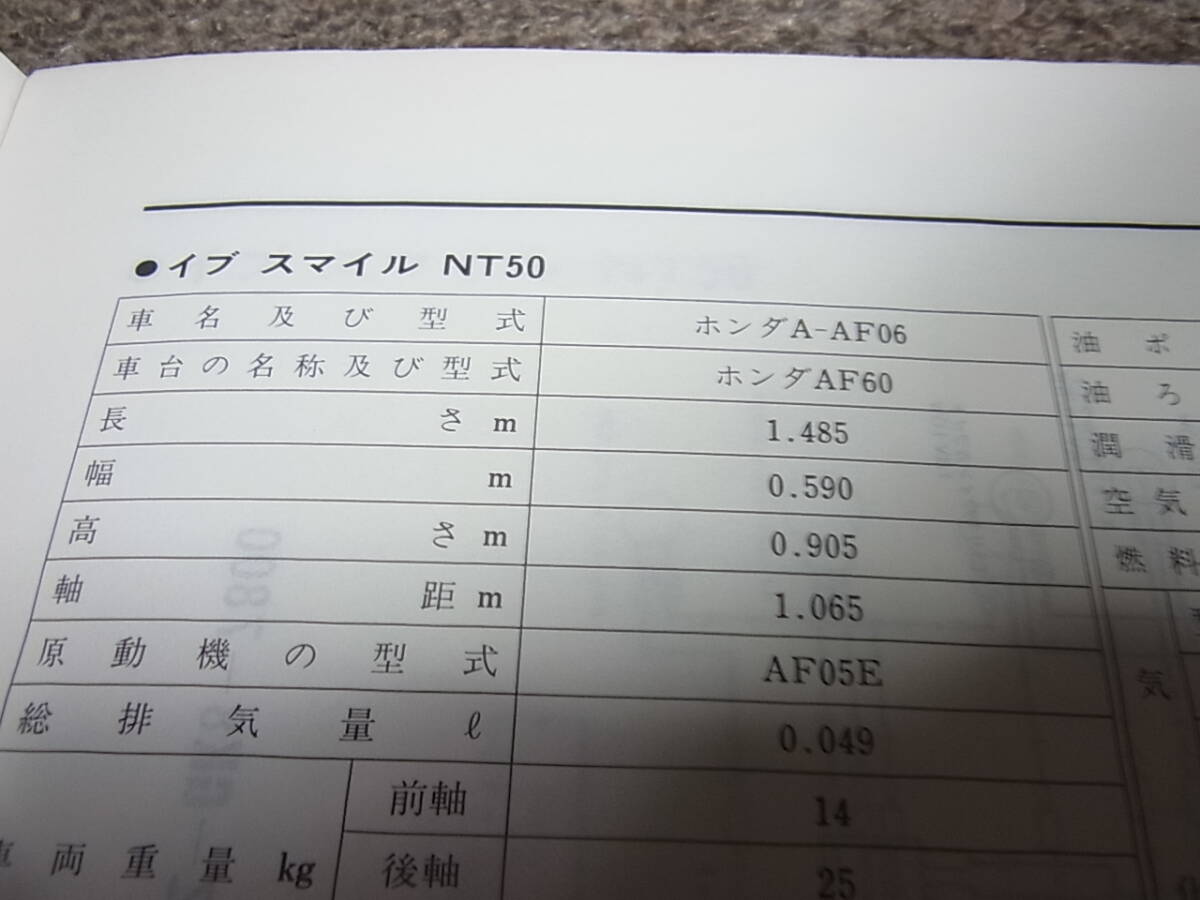 ●イブ スマイル NT50
車名及び型式 ホンダA-AF06
車台の名称及び型式 ホンダAF60
長さ m 1.485
幅 m 0.590
高さ m 0.905
軸距 m 1.065
原動機の型式 AF05E
総排気量 ℓ 0.049
車両重量 kg 前軸 14
後軸 25
油 ポ
油 ろ
潤 滑
空 気
燃 料
気